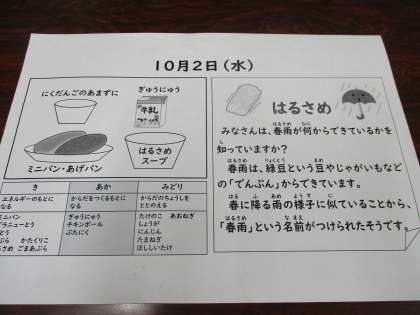 10月2日(水)
にくだんごのあまずに
ぎゅうにゅう
牛乳
ミニパン・あげパン
はるさめ
スープ
き
あか
みどり
エネルギーのもとに
なる
からだをつくるもとに
なる
からだのちょうしを
ととのえる
ミニパン
グラニューとう
とう
ぶら かたくりこ
さめ ごまあぶら
ぎゅうにゅう
チキンボール
ぶたにく
たけのこ あおねぎ
しょうが
にんじん
たまねぎ
ほししいたけ
はるさめ
みなさんは、春雨が何からできているかを
知っていますか?
春雨は、緑豆という豆やじゃがいもなど
の「でんぷん」からできています。
春に降る雨の様子に似ていることから、
「春雨」という名前がつけられたそうです。